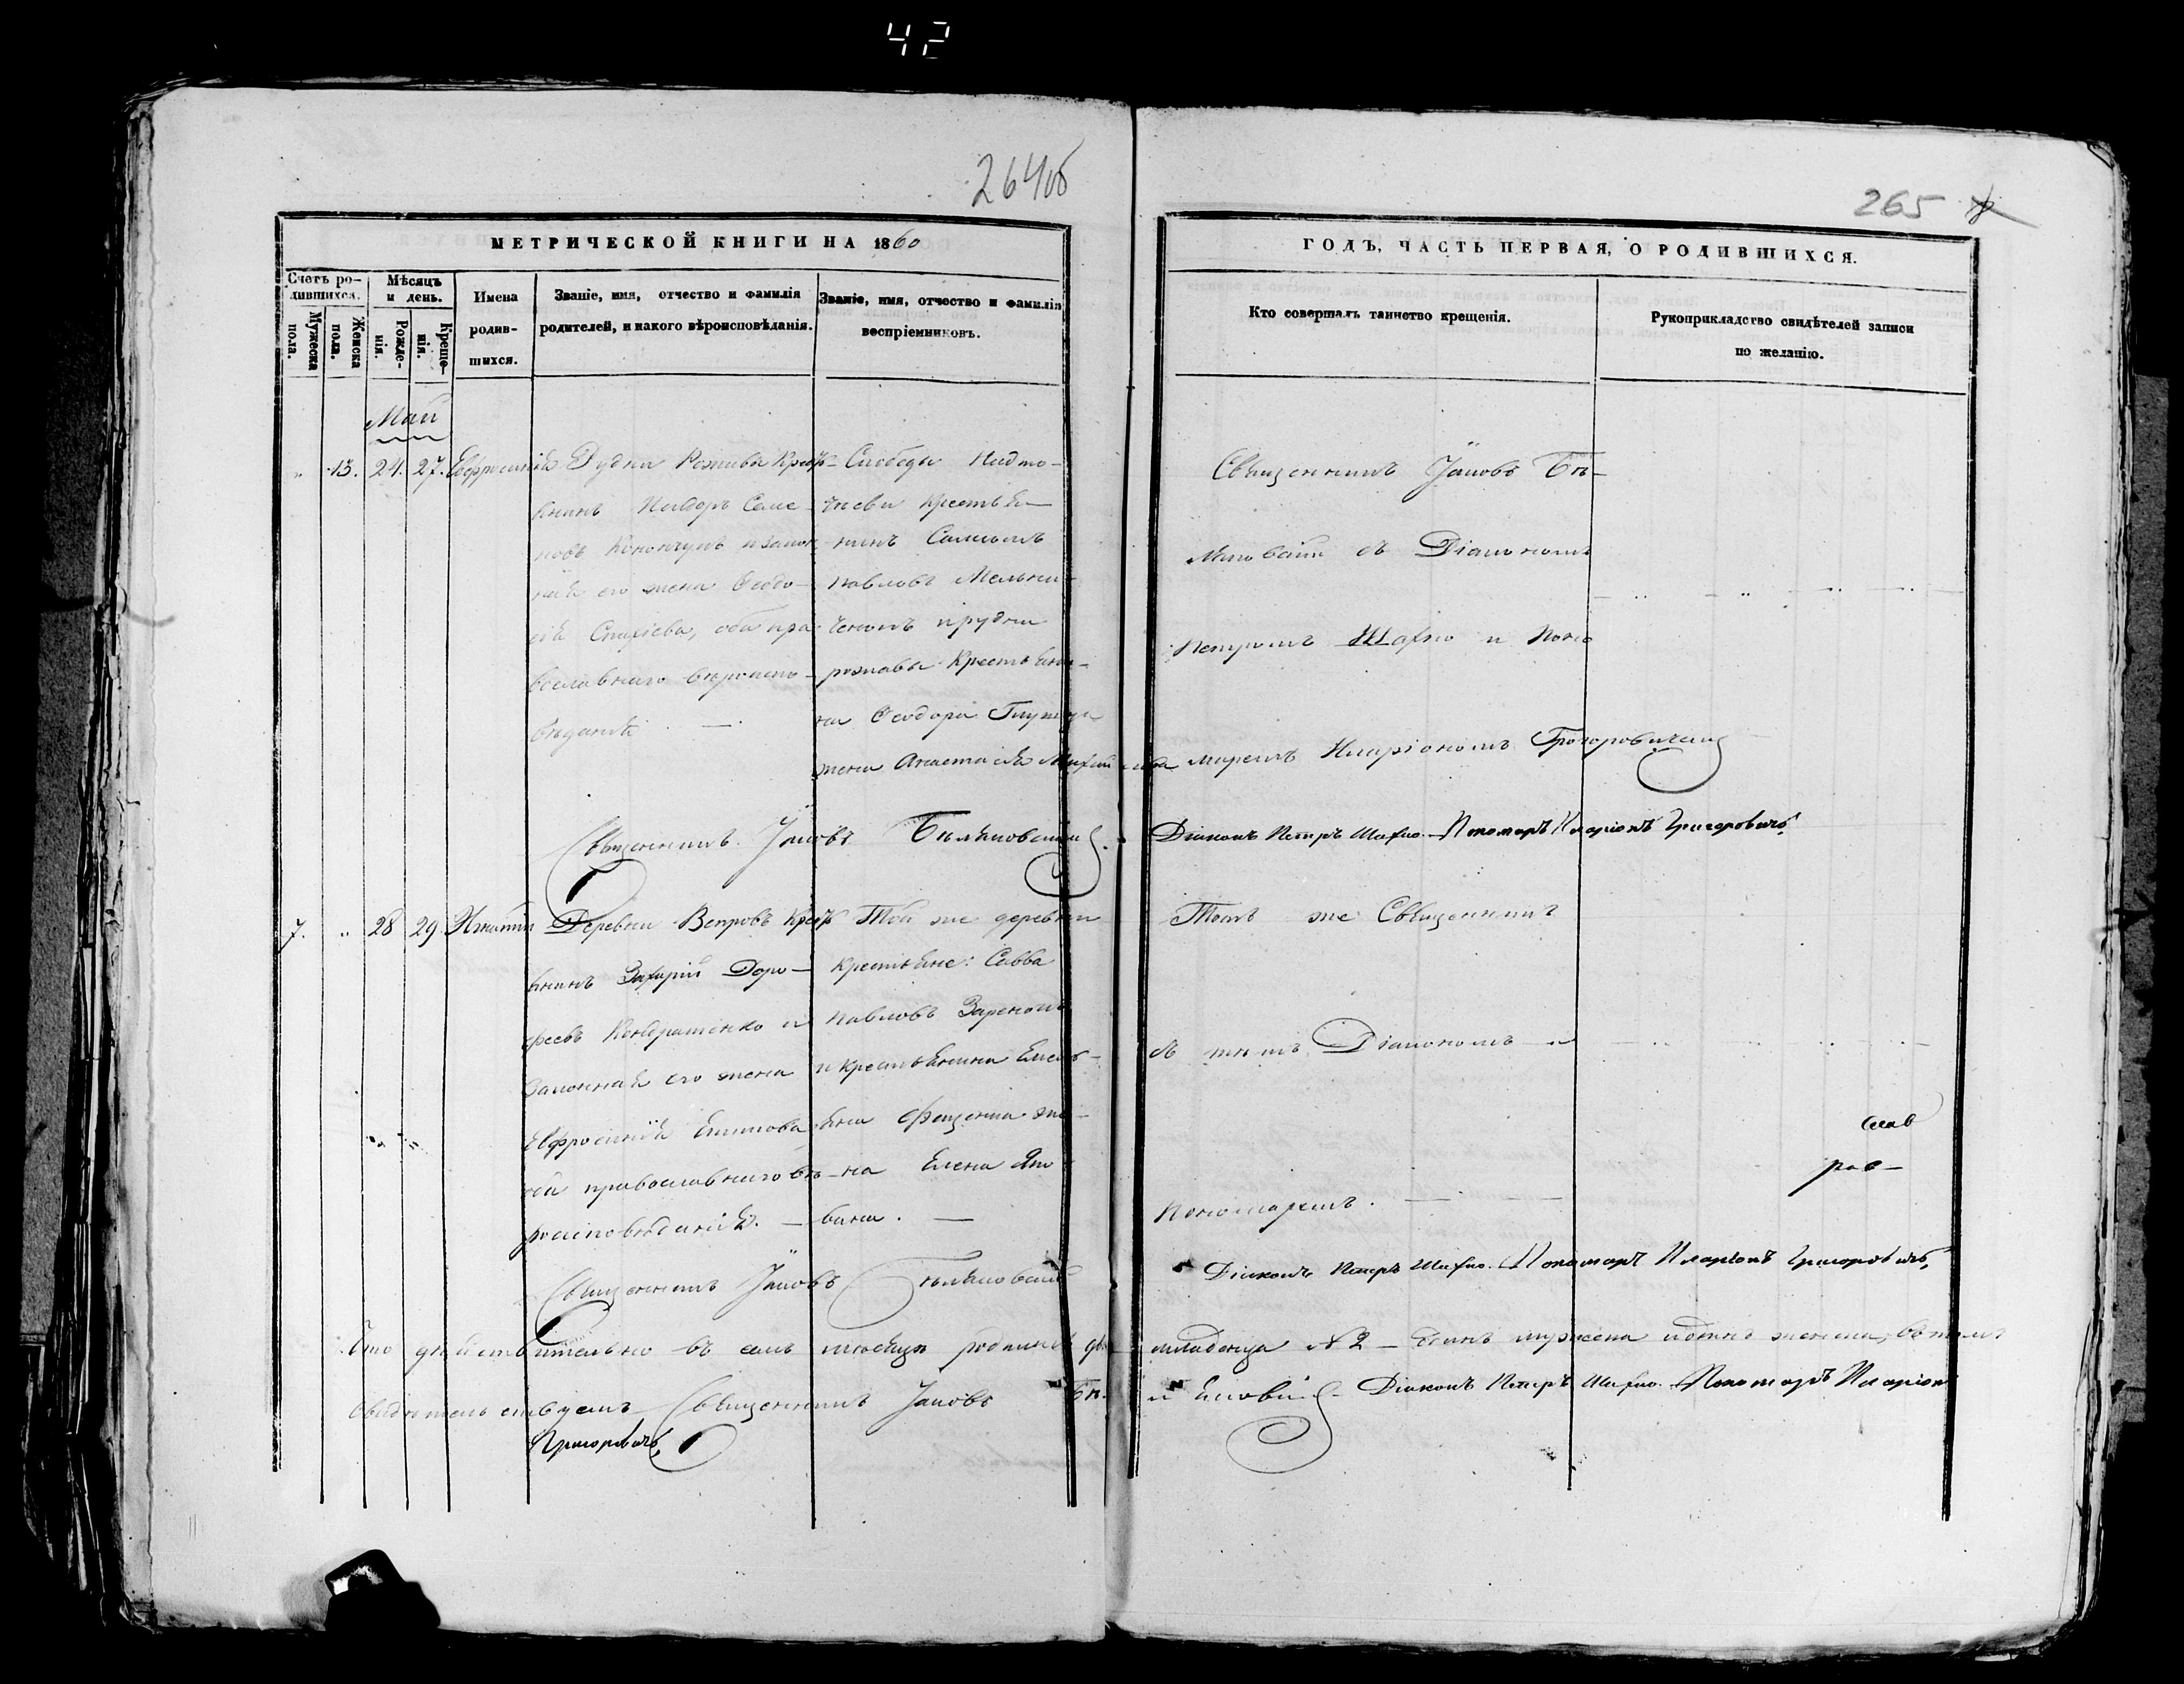 42
264об
265
МЕТРИЧЕСКОЙ КНИГИ НА 1860
ГОДЪ, ЧАСТЬ ПЕРВАЯ, О РОДИВШИХСЯ.
Счетъ ро-
дившихся.
Мужеска
пола.
Женска
пола.
Мѣсяцъ
и день.
Рожде-
нія.
Креще-
нія.
Имена
родив-
шихся.
Званіе, имя, отчество и фамилія
родителей, и какого вѣроисповѣданія.
Званіе, имя, отчество и фамилія
воспріемниковъ.
Кто совершалъ таинство крещенія.
Рукоприкладство свидѣтелей записи
по желанію.
Май
13. 24. 27. Евфросинія
Рудни Рожавы Крест-
янинъ Исидоръ Семе-
новъ Конончукъ и закон-
ная его жена Ѳеодо-
сія, оба пра-
вославнаго вѣроиспо-
вѣданія
Слободы
крестья-
нинъ
Павловъ Мельни-
ченокъ и рудни
рожавы Крестьяни-
на Ѳеодора
жена Анастасія Михайлова
Священникъ Іаковъ Бѣ-
ляновскій съ Діакономъ
Петромъ Шафно и Поно-
маремъ Иларіономъ Григоровичемъ
Священникъ Іаковъ Бѣляновскій
Діаконъ Петръ Шафно. Пономарь Иларіонъ Григоровичъ
7. „ 28 29 Игнатій
Деревни Вепровъ Крест-
янинъ Захарій Доро-
феевъ Кондратенко и
законная его жена
Евфросинія Екимова
оба православнаго вѣ-
роисповѣданія. —
Той же деревни
крестьяне: Савва
Павловъ
и крестьянина Емель-
яна же-
на Елена Яко-
влева. —
Тотъ же Священникъ
съ тѣмъ Діакономъ и
Пономаремъ. —
Священникъ Іаковъ Бѣляновскій
Діаконъ Петръ Шафно. Пономарь Иларіонъ Григоровичъ
Что дѣйствительно въ семъ мѣсяцѣ родились два младенца № 2 — одинъ мужеска и одинъ женска, въ томъ
свидѣтельствуемъ Священникъ Іаковъ Бѣляновскій Діаконъ Петръ Шафно. Пономарь Иларіонъ
Григоровичъ